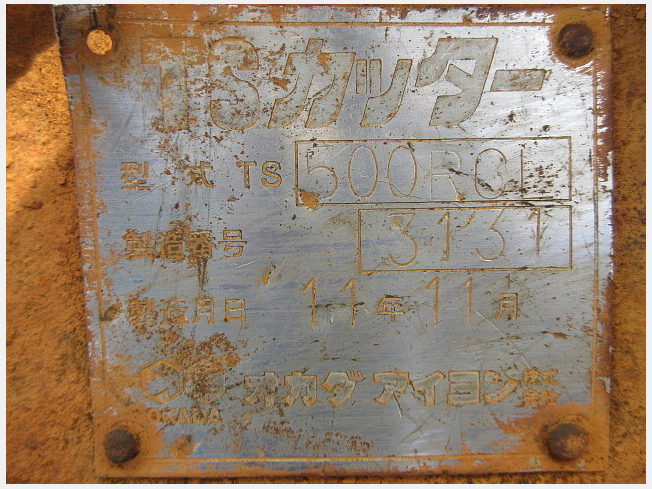 TSカッター
型式 TS 500RCL
製造番号 3131
製造月日 11年11月
OKADA オカダアイヨン株式会社